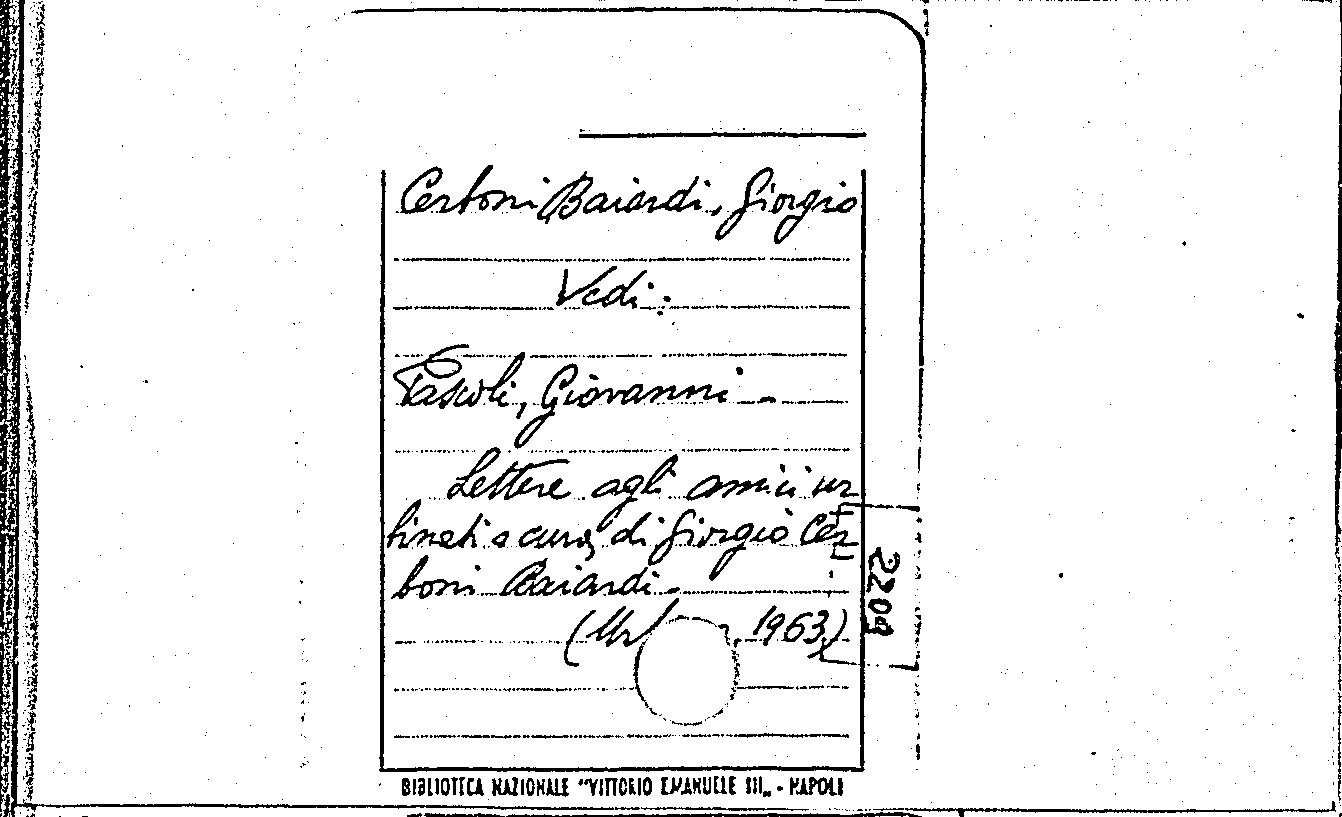 Cerboni Baiardi, Giorgio
Vedi:
Pascoli, Giovanni -
Lettere agli amici ur
binati a cura di Giorgio Cer
boni Baiardi.
1963)
2209
BIBLIOTECA NAZIONALE "VITTORIO EMANUELE III„ - NAPOLI